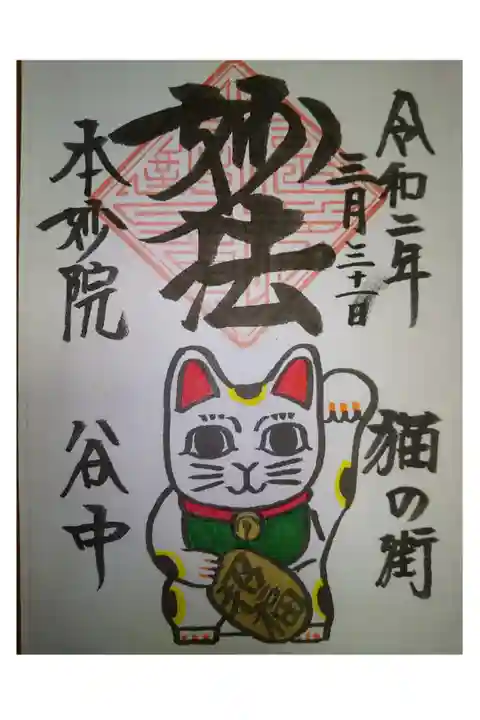 令和二年
三月三十一日
妙法
本妙院
猫の街
谷中